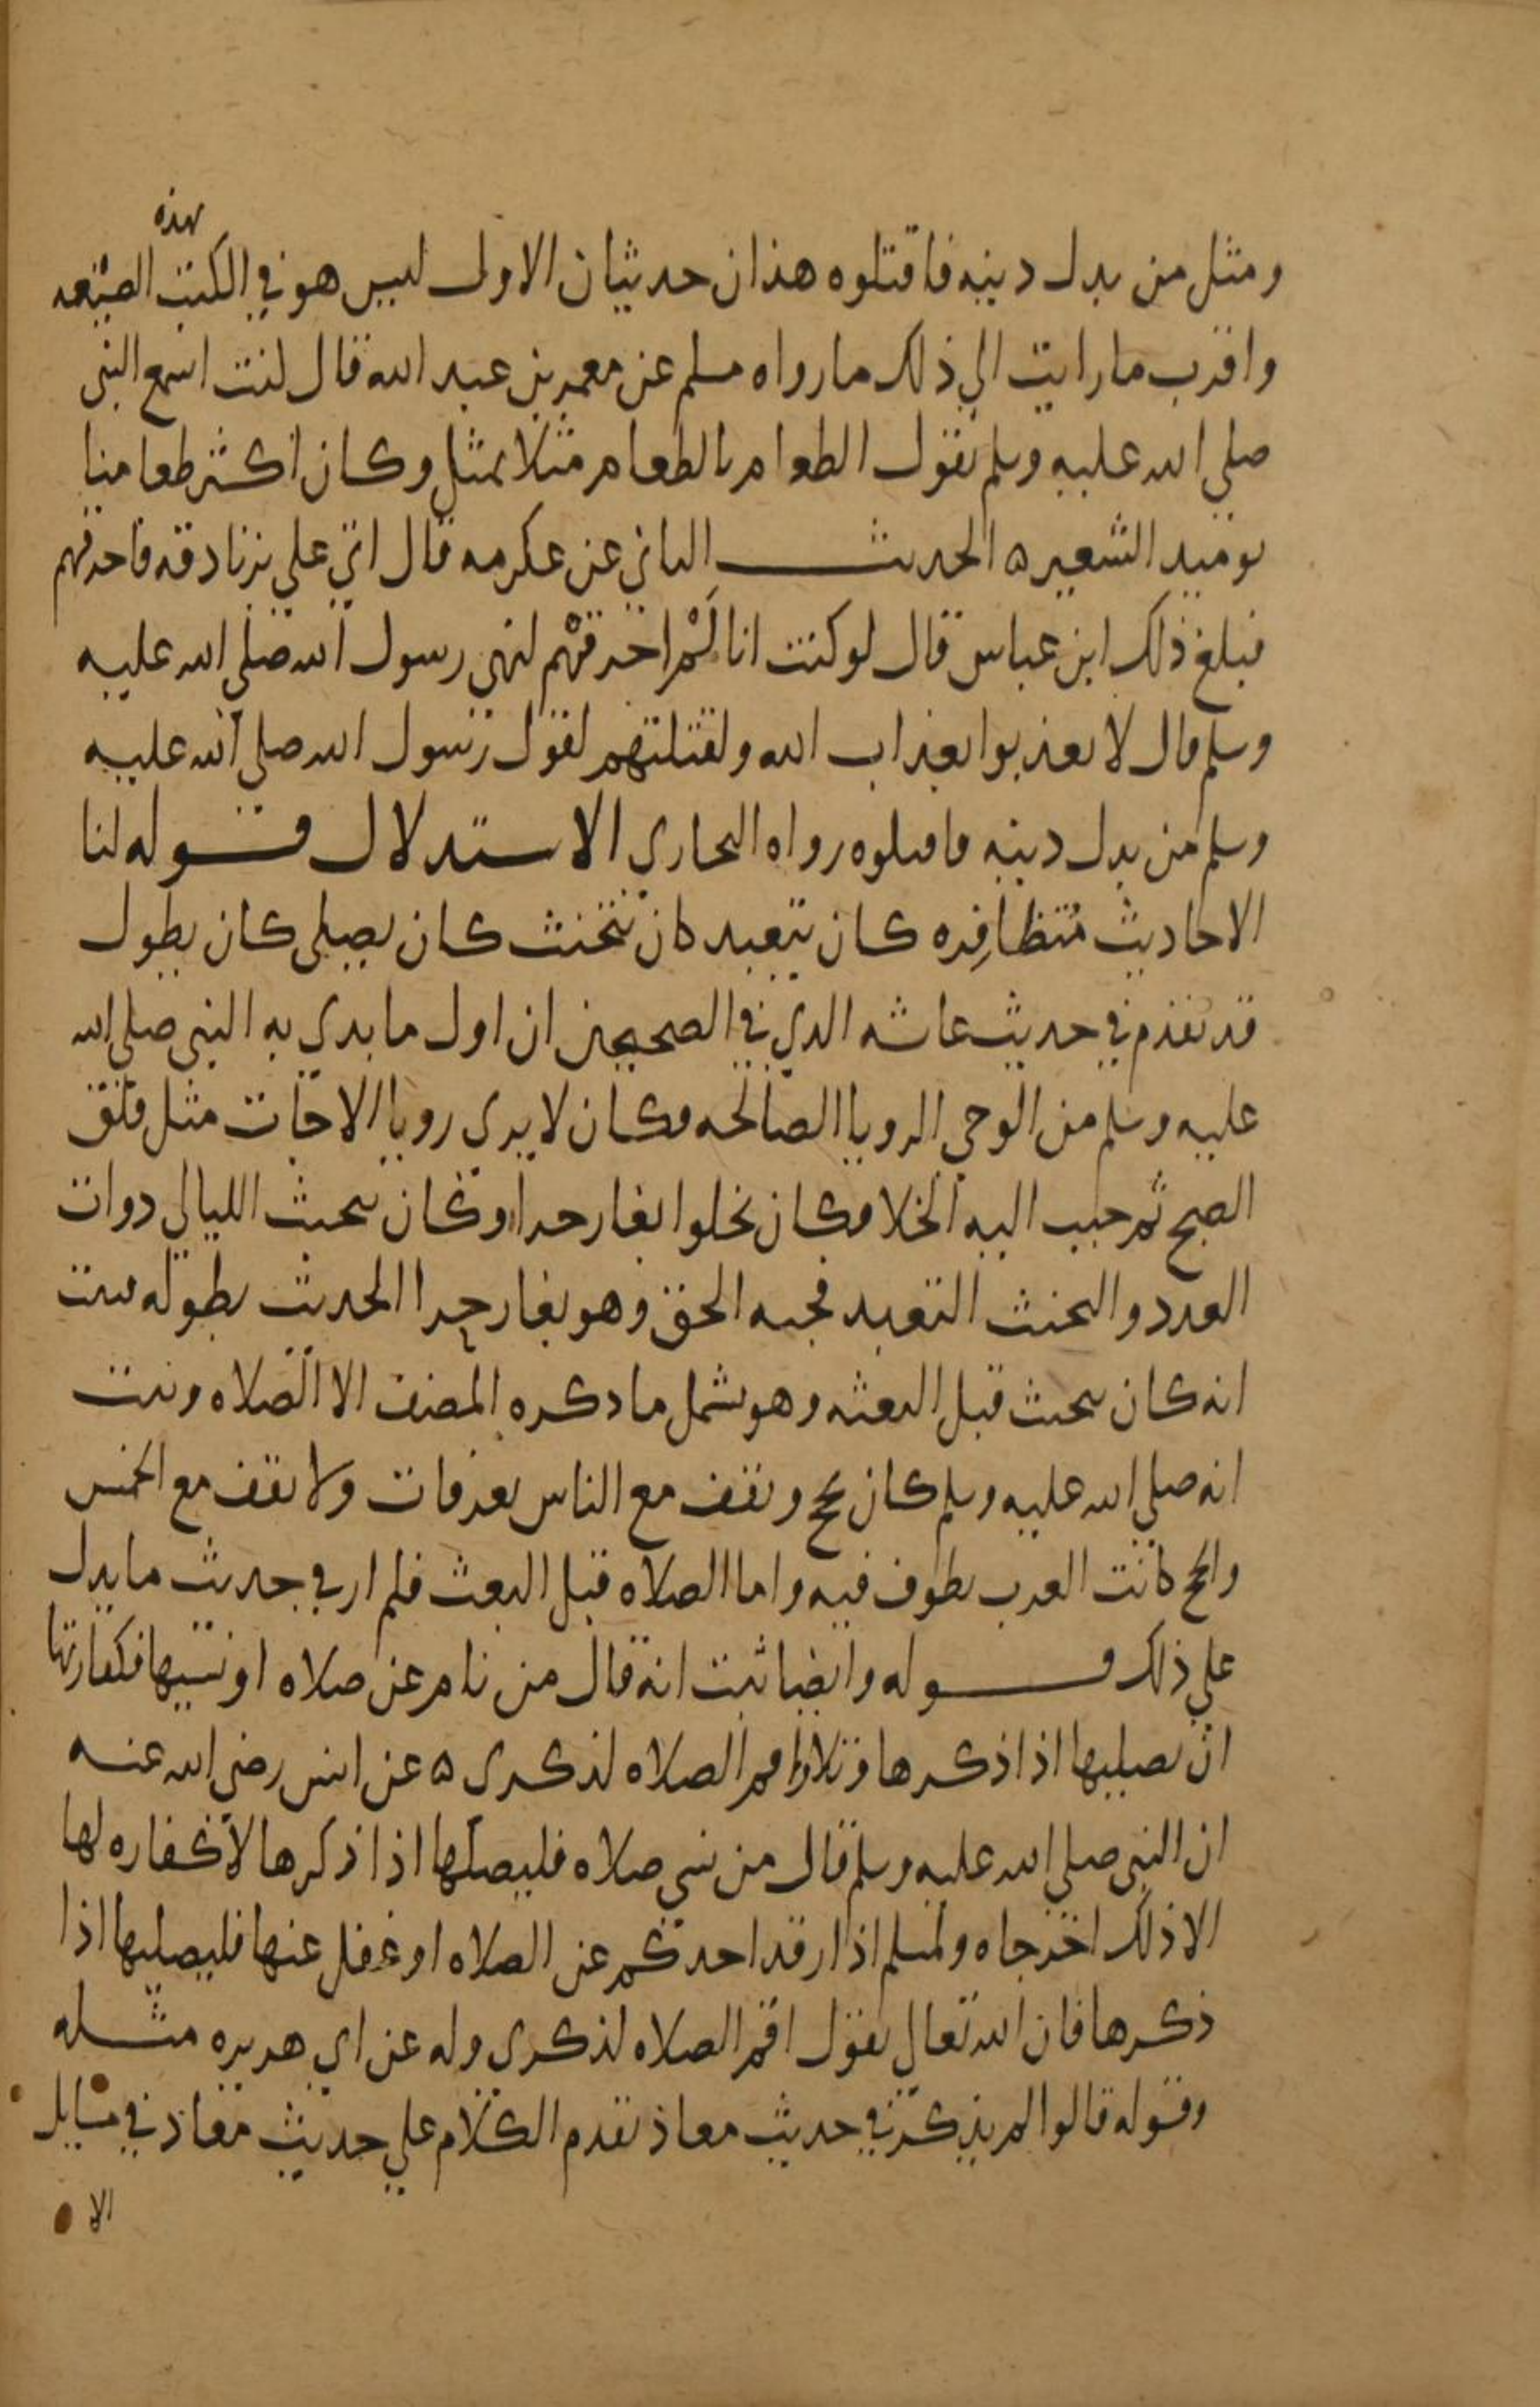 ومثل من بدل دينه فاقتلوه هذان حديثان الاول ليس هو في الكتب بهذه الصيغه
واقرب ما رايت الي ذلك ما رواه مسلم عن معمر بن عبد الله قال كنت اسمع النبي
صلي الله عليه وسلم يقول الطعام بالطعام مثلا بمثل وكان اكثر طعامنا
يوميد الشعير ه الحديث الثاني عن عكرمه قال اتي علي بزنادقه فاحرقهم
فبلغ ذلك ابن عباس قال لو كنت انا لم احرقهم لنهي رسول الله صلي الله عليه
وسلم قال لا تعذبوا بعذاب الله ولقتلتهم لقول رسول الله صلي الله عليه
وسلم من بدل دينه فاقتلوه رواه البخاري الاستدلال قوله لنا
الاحاديث مُتظافِره كان يتعبد كان يتحنث كان يصلي كان يطوف
قد تقدم في حديث عاشه الدي في الصحيحين ان اول ما بدي به النبي صلي الله
عليه وسلم من الوحي الرويا الصالحه فكان لا يري رويا الا جات مثل فلق
الصبح ثم حبب اليه الخلا فكان يخلوا بغار حرا وكان يتحنث الليالي دوات
العدد والتحنث التعبد فجيه الحق وهو بغار حرا الحديث بطوله فثبت
انه كان يتحنث قبل البعثه وهو يشمل ما دكره المصنف الا الصلاه وثبت
انه صلي الله عليه وسلم كان يحج ويقف مع الناس بعرفات ولا يقف مع الحمس
والحج كانت العرب تطوف فيه واما الصلاه قبل البعث فلم ار في حديث ما يدل
علي ذلك قوله وايضا ثبت انه قال من نام عن صلاه او نسيها فكفارتها
ان يصليها اذا ذكرها وتلا واقم الصلاه لذكري ه عن انس رضي الله عنه
ان النبي صلي الله عليه وسلم قال من نسي صلاه فليصلها اذا ذكرها لا كفاره لها
الا ذلك اخرجاه ولمسلم اذا رقد احدكم عن الصلاه او غفل عنها فليصليها اذا
ذكرها فان الله تعالي يقول اقم الصلاه لذكري وله عن ابي هريره مثله
وقوله قالوا لم يذكر في حديث معاذ تقدم الكلام علي حديث معاذ في مسايل
الا